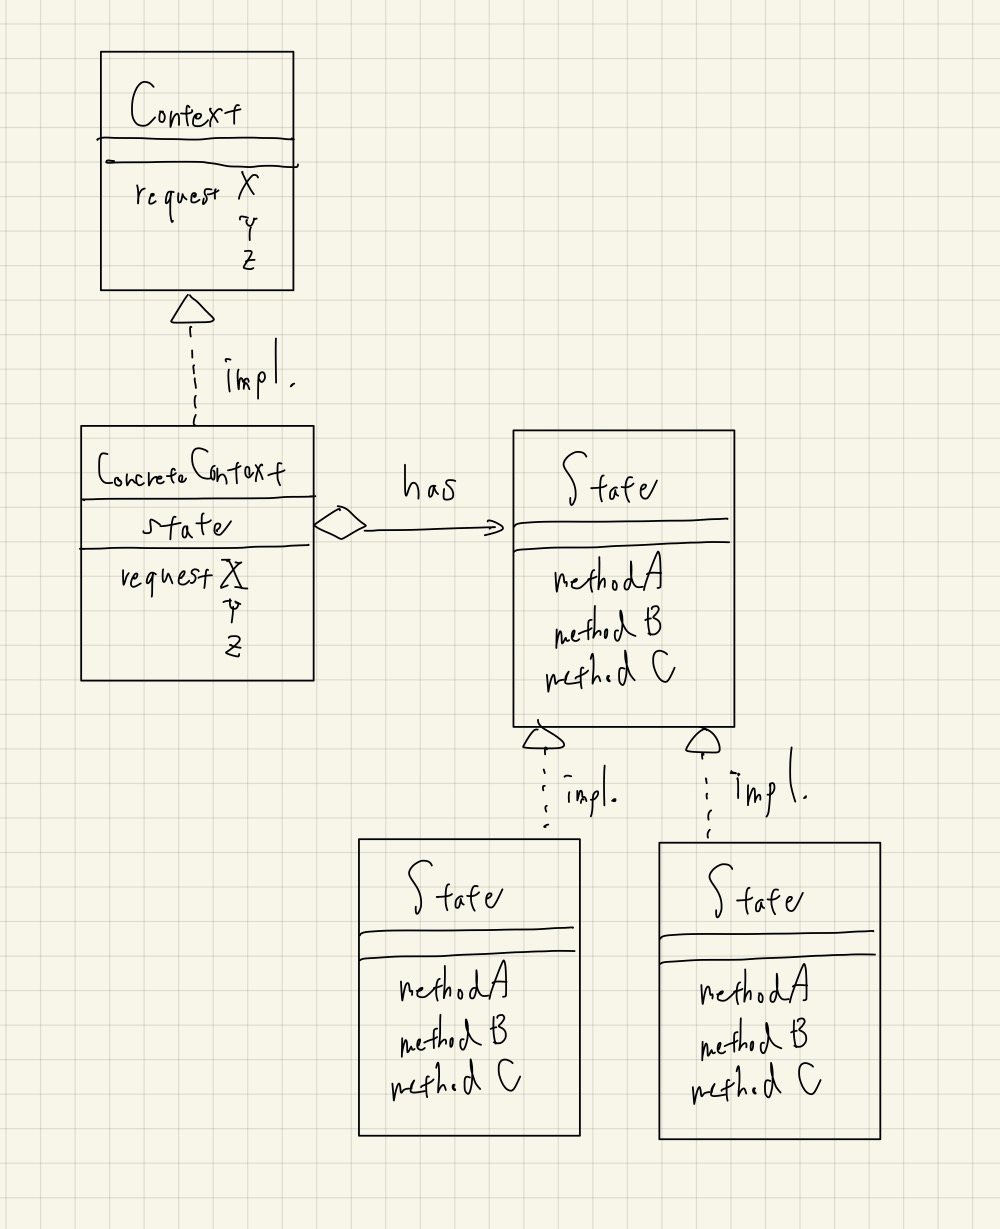 Context
request X
Y
Z
impl.
ConcreteContext
state
request X
Y
Z
has
State
methodA
method B
method C
impl.
impl.
State
methodA
method B
method C
State
methodA
method B
method C